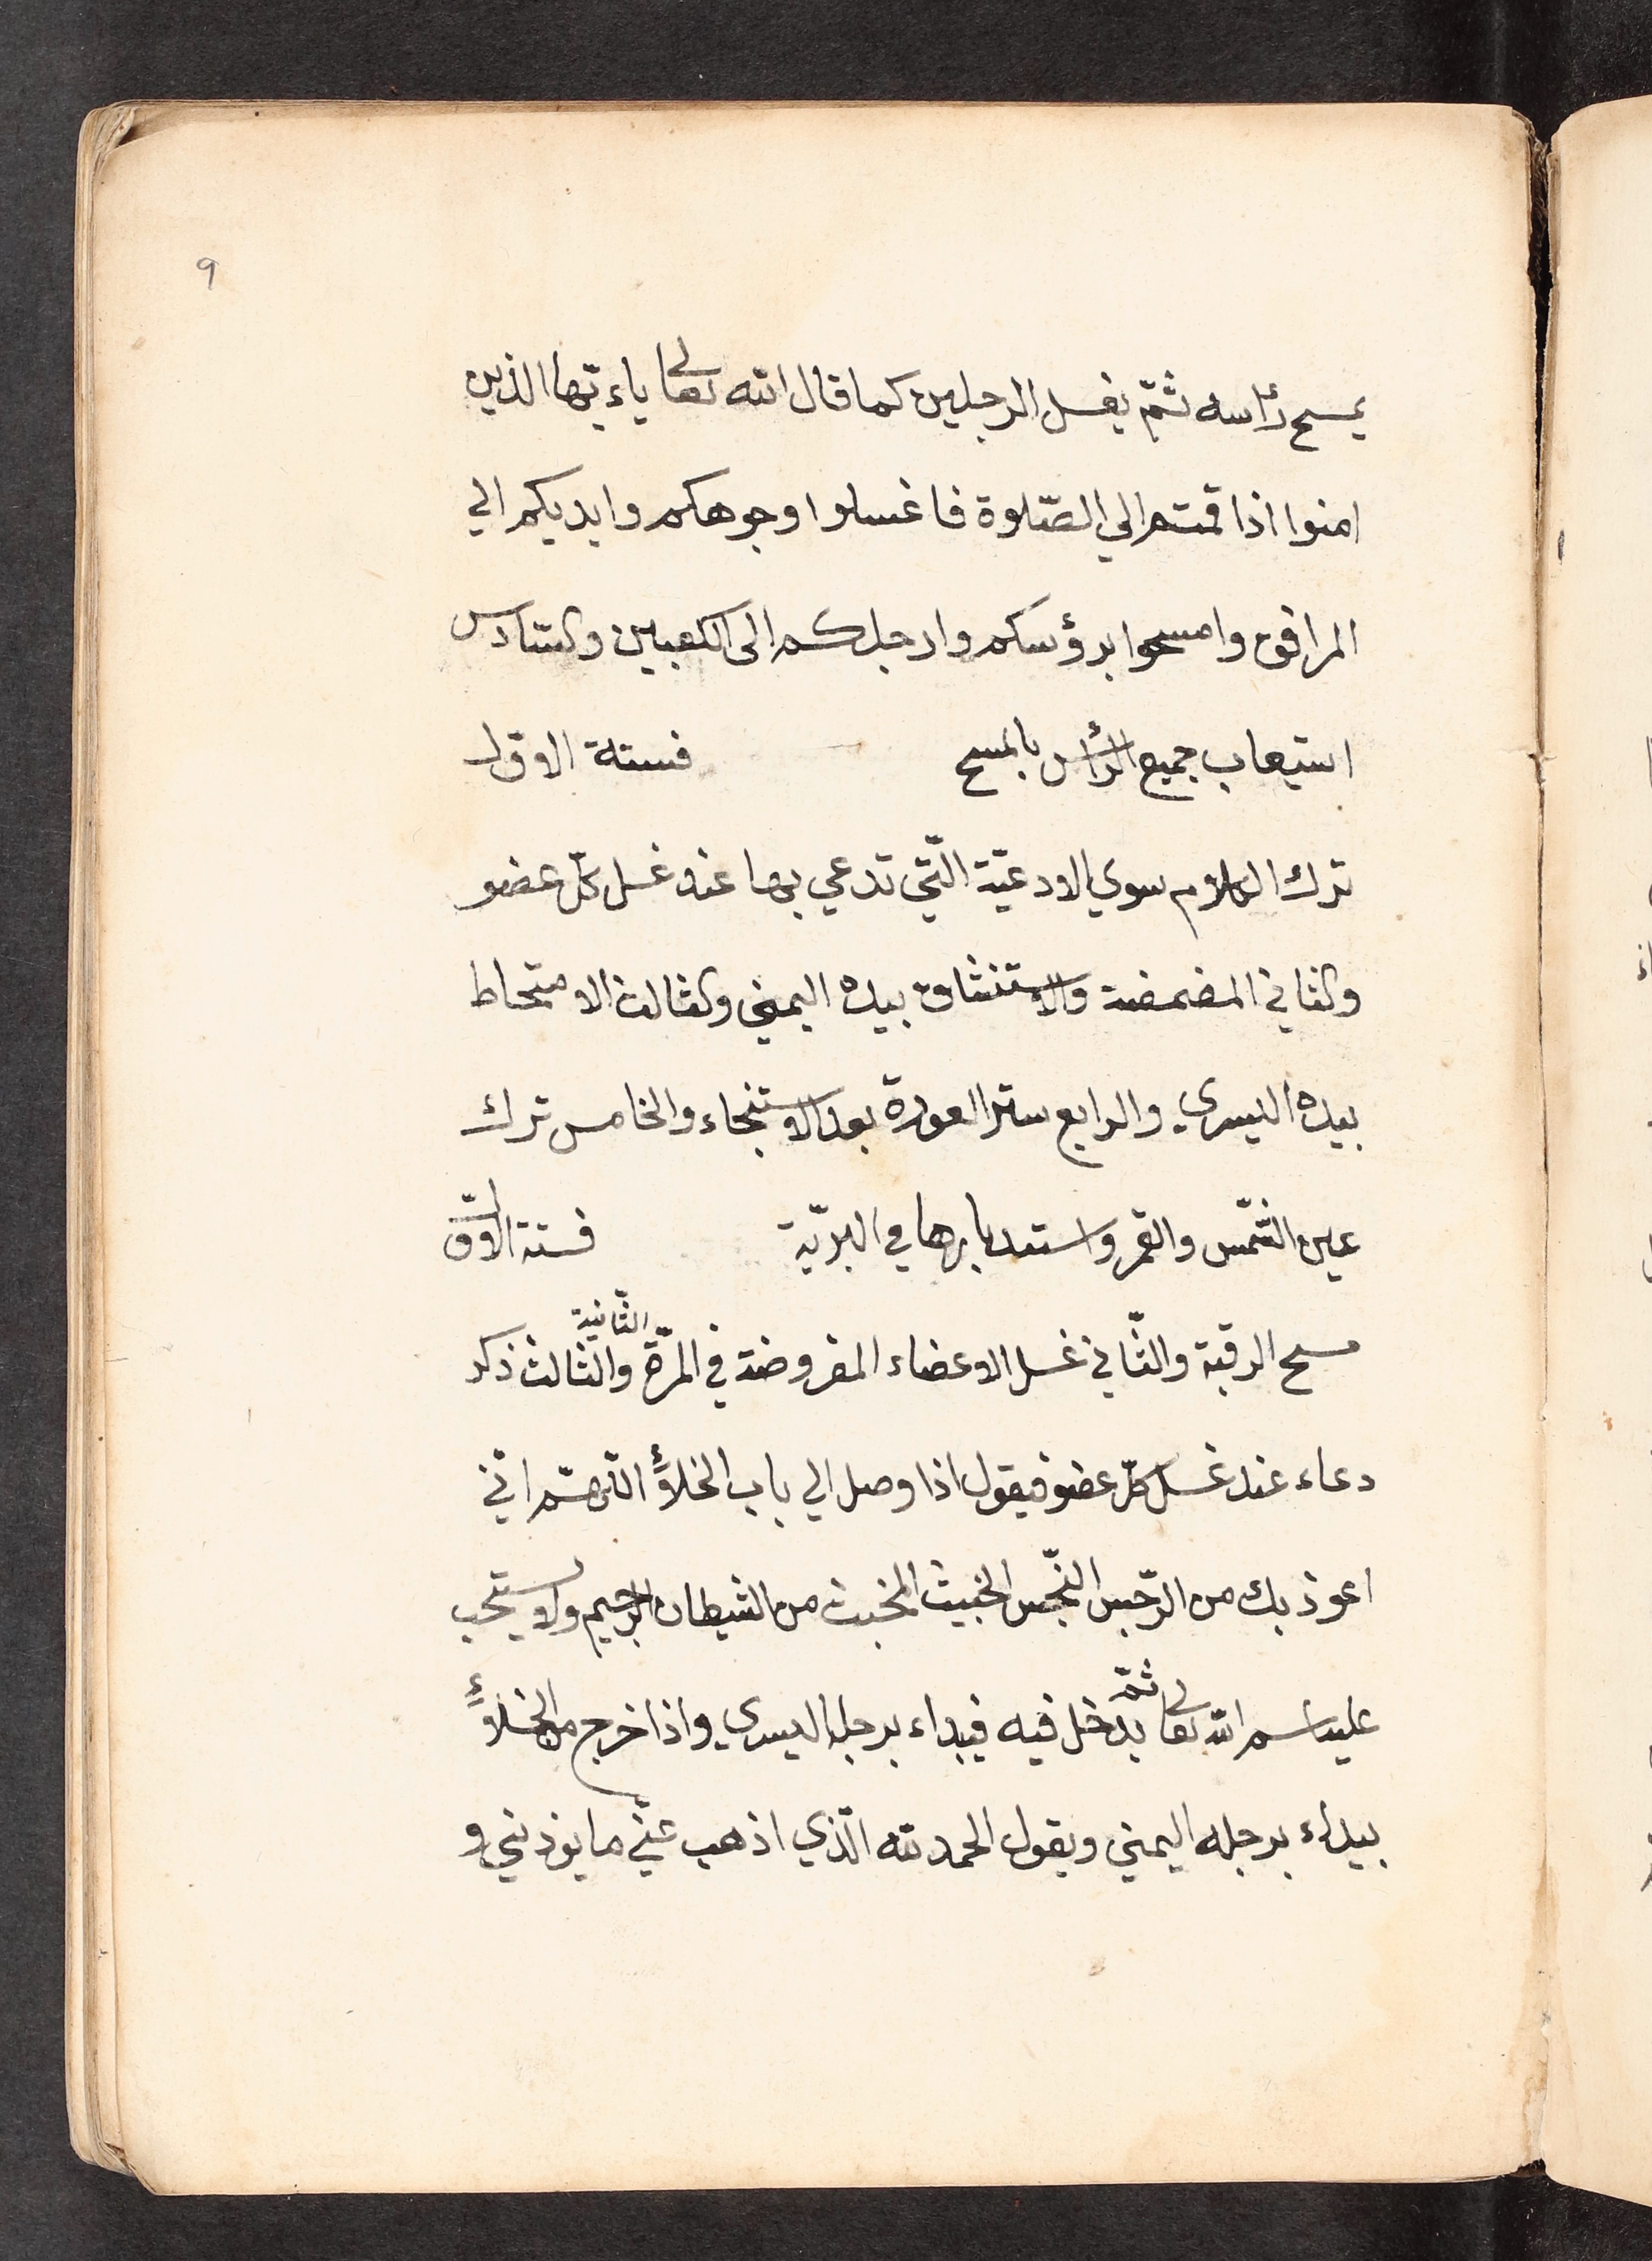 9
يمسح رأسه ثمّ يغسل الرجلين كما قال الله تعالى ياءيّها الذين
امنوا اذا قمتم الي الصّلوة فاغسلوا وجوهكم وايديكم الي
المرافق وامسحوا برؤسكم وارجلكم الى الكعبين والسّادس
استيعاب جميع الرّأس بالمسح فستة الاوّل
ترك الكلام سوي الادعيّة الّتي تدعي بها عند غسل كلّ عضو
والثاني المضمضة والاستنشاق بيده اليمني والثالث الامتخاط
بيده اليسري والرابع ستر العورة بعد الاستنجاء والخامس ترك
عين الشّمس والقمر واستدبارها في البريّة فستة الاوّل
مسح الرقبة والثّاني غسل الاعضاء المفروضة في المرّة الثّانية والثالث ذكر
دعاء عند غسل كلّ عضو فيقول اذا وصل الي باب الخلاء اللّهمّ انّي
اعوذ بك من الرّجس النّجس الخبيث المخبث من الشيطان الرجيم ولا يستحب
عليه اسم الله تعالى ثمّ يدخل فيه فيبداء برجله اليسري واذا خرج من الخلاء
يبداء برجله اليمني ويقول الحمد لله الّذي اذهب عنّي ما يوذيني و